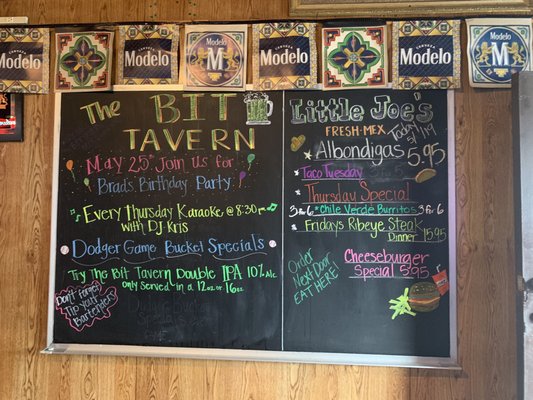 Modelo
Modelo
Modelo
Modelo
Modelo
Modelo
The BIT
TAVERN
May 25th Join us for
Brad's Birthday Party
Every Thursday Karaoke @ 8:30 pm
With DJ Kris
Dodger Game Bucket Specials
Try The Bit Tavern Double IPA 10% Alc
Only Served in a 12oz or 16oz
Don't forget
Tip your
Bartenders
Little Joes
FRESH-MEX
Today
5/19
Albondigas 5.95
Taco Tuesday
Thursday Special
3 For 6 Chile Verde Burritos 3 For 6
Fridays Ribeye Steak
Dinner 15.95
Order
Next Door
EAT HERE!
Cheeseburger
Special 5.95